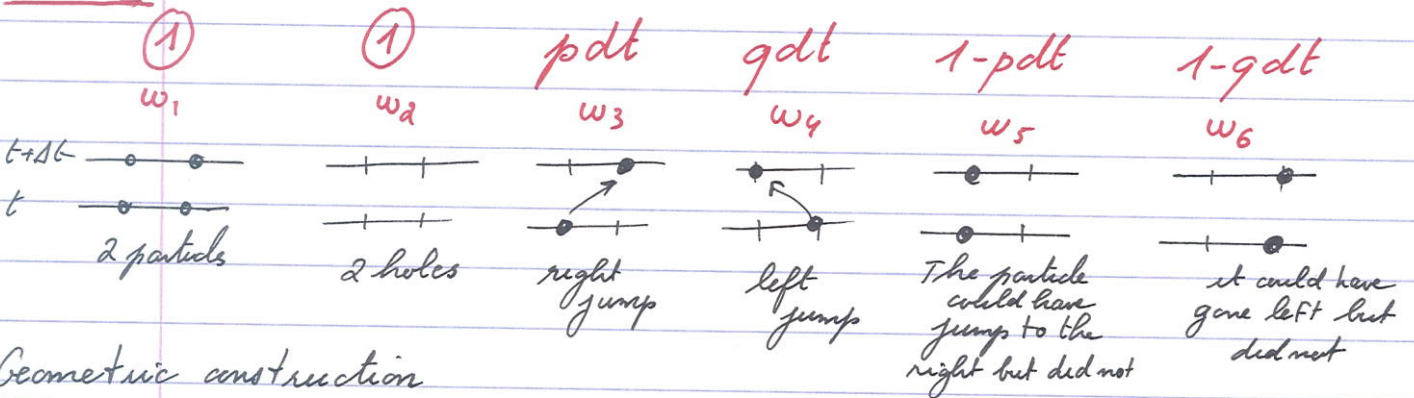 ① ① pdt qdt 1-pdt 1-qdt
w₁ w₂ w₃ w₄ w₅ w₆
t+Δt
t
2 particles 2 holes right jump left jump The particle could have jump to the right but did not it could have gone left but did not
Geometric construction